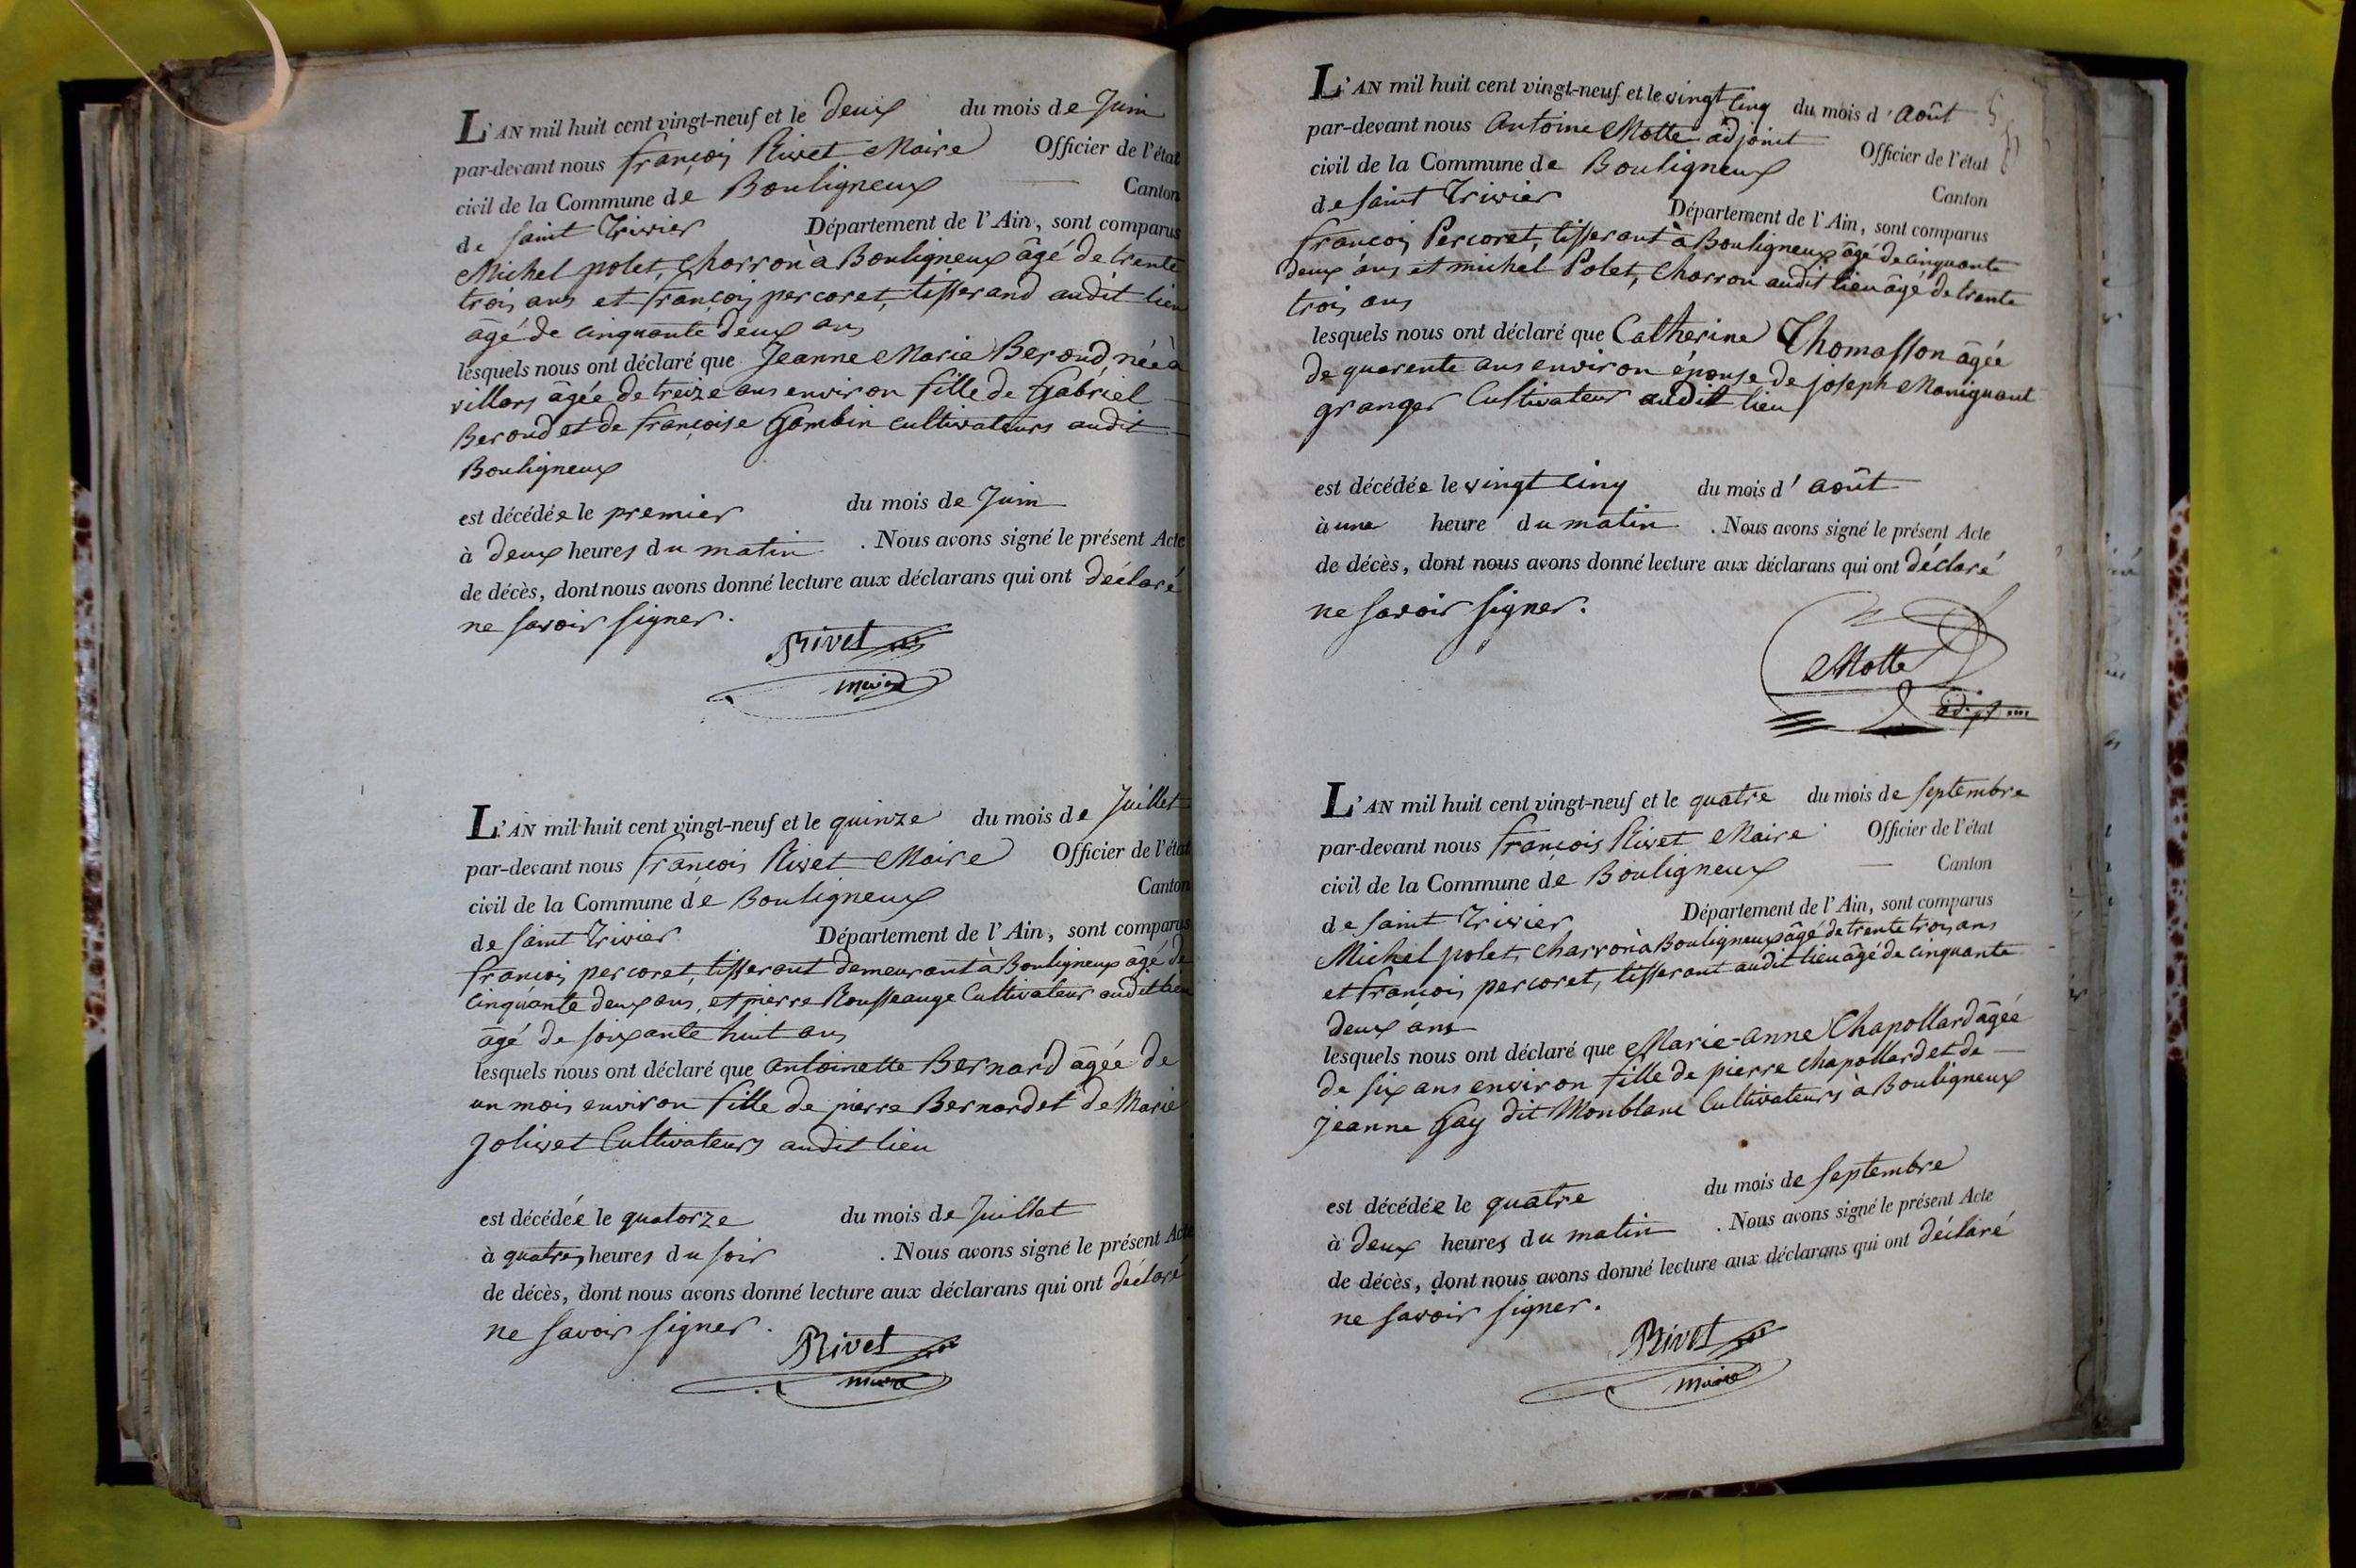 L'AN mil huit cent vingt-neuf et le deux du mois de Juin
par-devant nous françois Rivet Maire Officier de l'état
civil de la Commune de Bouligneux Canton
de saint Trivier Département de l'Ain, sont comparus
Michel polet, Charron à Bouligneux âgé de trente
trois ans et françois percoret, tisserand audit lieu
âgé de cinquante deux ans
lesquels nous ont déclaré que Jeanne Marie Beroud, née à
villars âgée de treize ans environ fille de Gabriel
Beroud et de françoise Gombin cultivateurs audit
Bouligneux
est décédée le premier du mois de Juin
à deux heures du matin . Nous avons signé le présent Acte
de décès, dont nous avons donné lecture aux déclarans qui ont déclaré
ne savoir signer.
Rivet
maire
L'AN mil huit cent vingt-neuf et le quinze du mois de Juillet
par-devant nous françois Rivet Maire Officier de l'état
civil de la Commune de Bouligneux Canton
de saint Trivier Département de l'Ain, sont comparus
françois percoret, tisserant demeurant à Bouligneux âgé de
cinquante deux ans, et pierre Rousseauge Cultivateur audit lieu
âgé de soixante huit ans
lesquels nous ont déclaré que antoinette Bernard âgée de
un mois environ fille de pierre Bernard et de Marie
Jolivet Cultivateurs audit lieu
est décédée le quatorze du mois de Juillet
à quatres heures du soir . Nous avons signé le présent Acte
de décès, dont nous avons donné lecture aux déclarans qui ont déclaré
ne savoir signer.
Rivet
maire
L'AN mil huit cent vingt-neuf et le vingt cinq du mois d'août
par-devant nous Antoine Motte adjoint Officier de l'état
civil de la Commune de Bouligneux Canton
de saint Trivier Département de l'Ain, sont comparus
françois Percoret, tisserant à Bouligneux âgé de cinquante
deux ans et michel Polet, Charron audit lieu âgé de trente
trois ans
lesquels nous ont déclaré que Catherine Thomasson âgée
de quarente ans environ épouse de joseph Maniguant
granger Cultivateur audit lieu
est décédée le vingt cinq du mois d'août
à une heure du matin . Nous avons signé le présent Acte
de décès, dont nous avons donné lecture aux déclarans qui ont déclaré
ne savoir signer.
Motte
L'AN mil huit cent vingt-neuf et le quatre du mois de septembre
par-devant nous françois Rivet Maire Officier de l'état
civil de la Commune de Bouligneux Canton
de saint Trivier Département de l'Ain, sont comparus
Michel polet, charron à Bouligneux âgé de trente trois ans
et françois percoret, tisserant audit lieu âgé de cinquante
deux ans
lesquels nous ont déclaré que Marie-anne Chapollard âgée
de six ans environ fille de pierre chapollard et de
jeanne Gay dit Monblanc Cultivateurs à Bouligneux
est décédée le quatre du mois de septembre
à deux heures du matin . Nous avons signé le présent Acte
de décès, dont nous avons donné lecture aux déclarans qui ont déclaré
ne savoir signer.
Rivet
maire